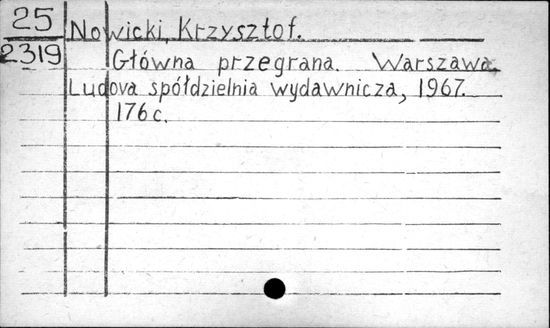 25
2319
Nowicki, Krzysztof.
Główna przegrana. Warszawa,
Ludova spółdzielnia wydawnicza, 1967.
176 c.